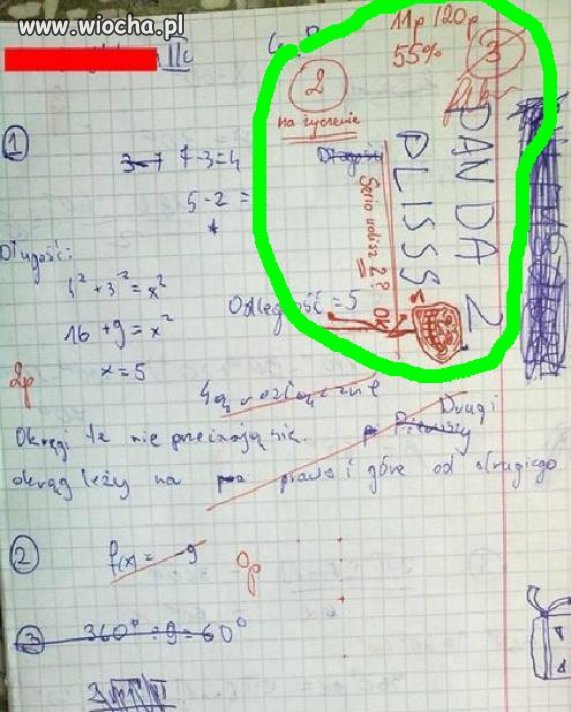 www.wiocha.pl
IIc
Gr. B
11p/20p
55%
3
2
na życzenie
PAN DA 2
PLISSS
Serio wolisz 2?
OK
1
3-7 7-3=4
5-2=
Długość:
4² + 3² = x²
16 + 9 = x²
x = 5
Odległość = 5
2p
Są rozłączne
Okręgi te nie przecinają się.
Drugi
Pierwszy
okrąg leży na prawo i górę od drugiego
2
f(x) = -9
0p
3
360° : 9 = 60°